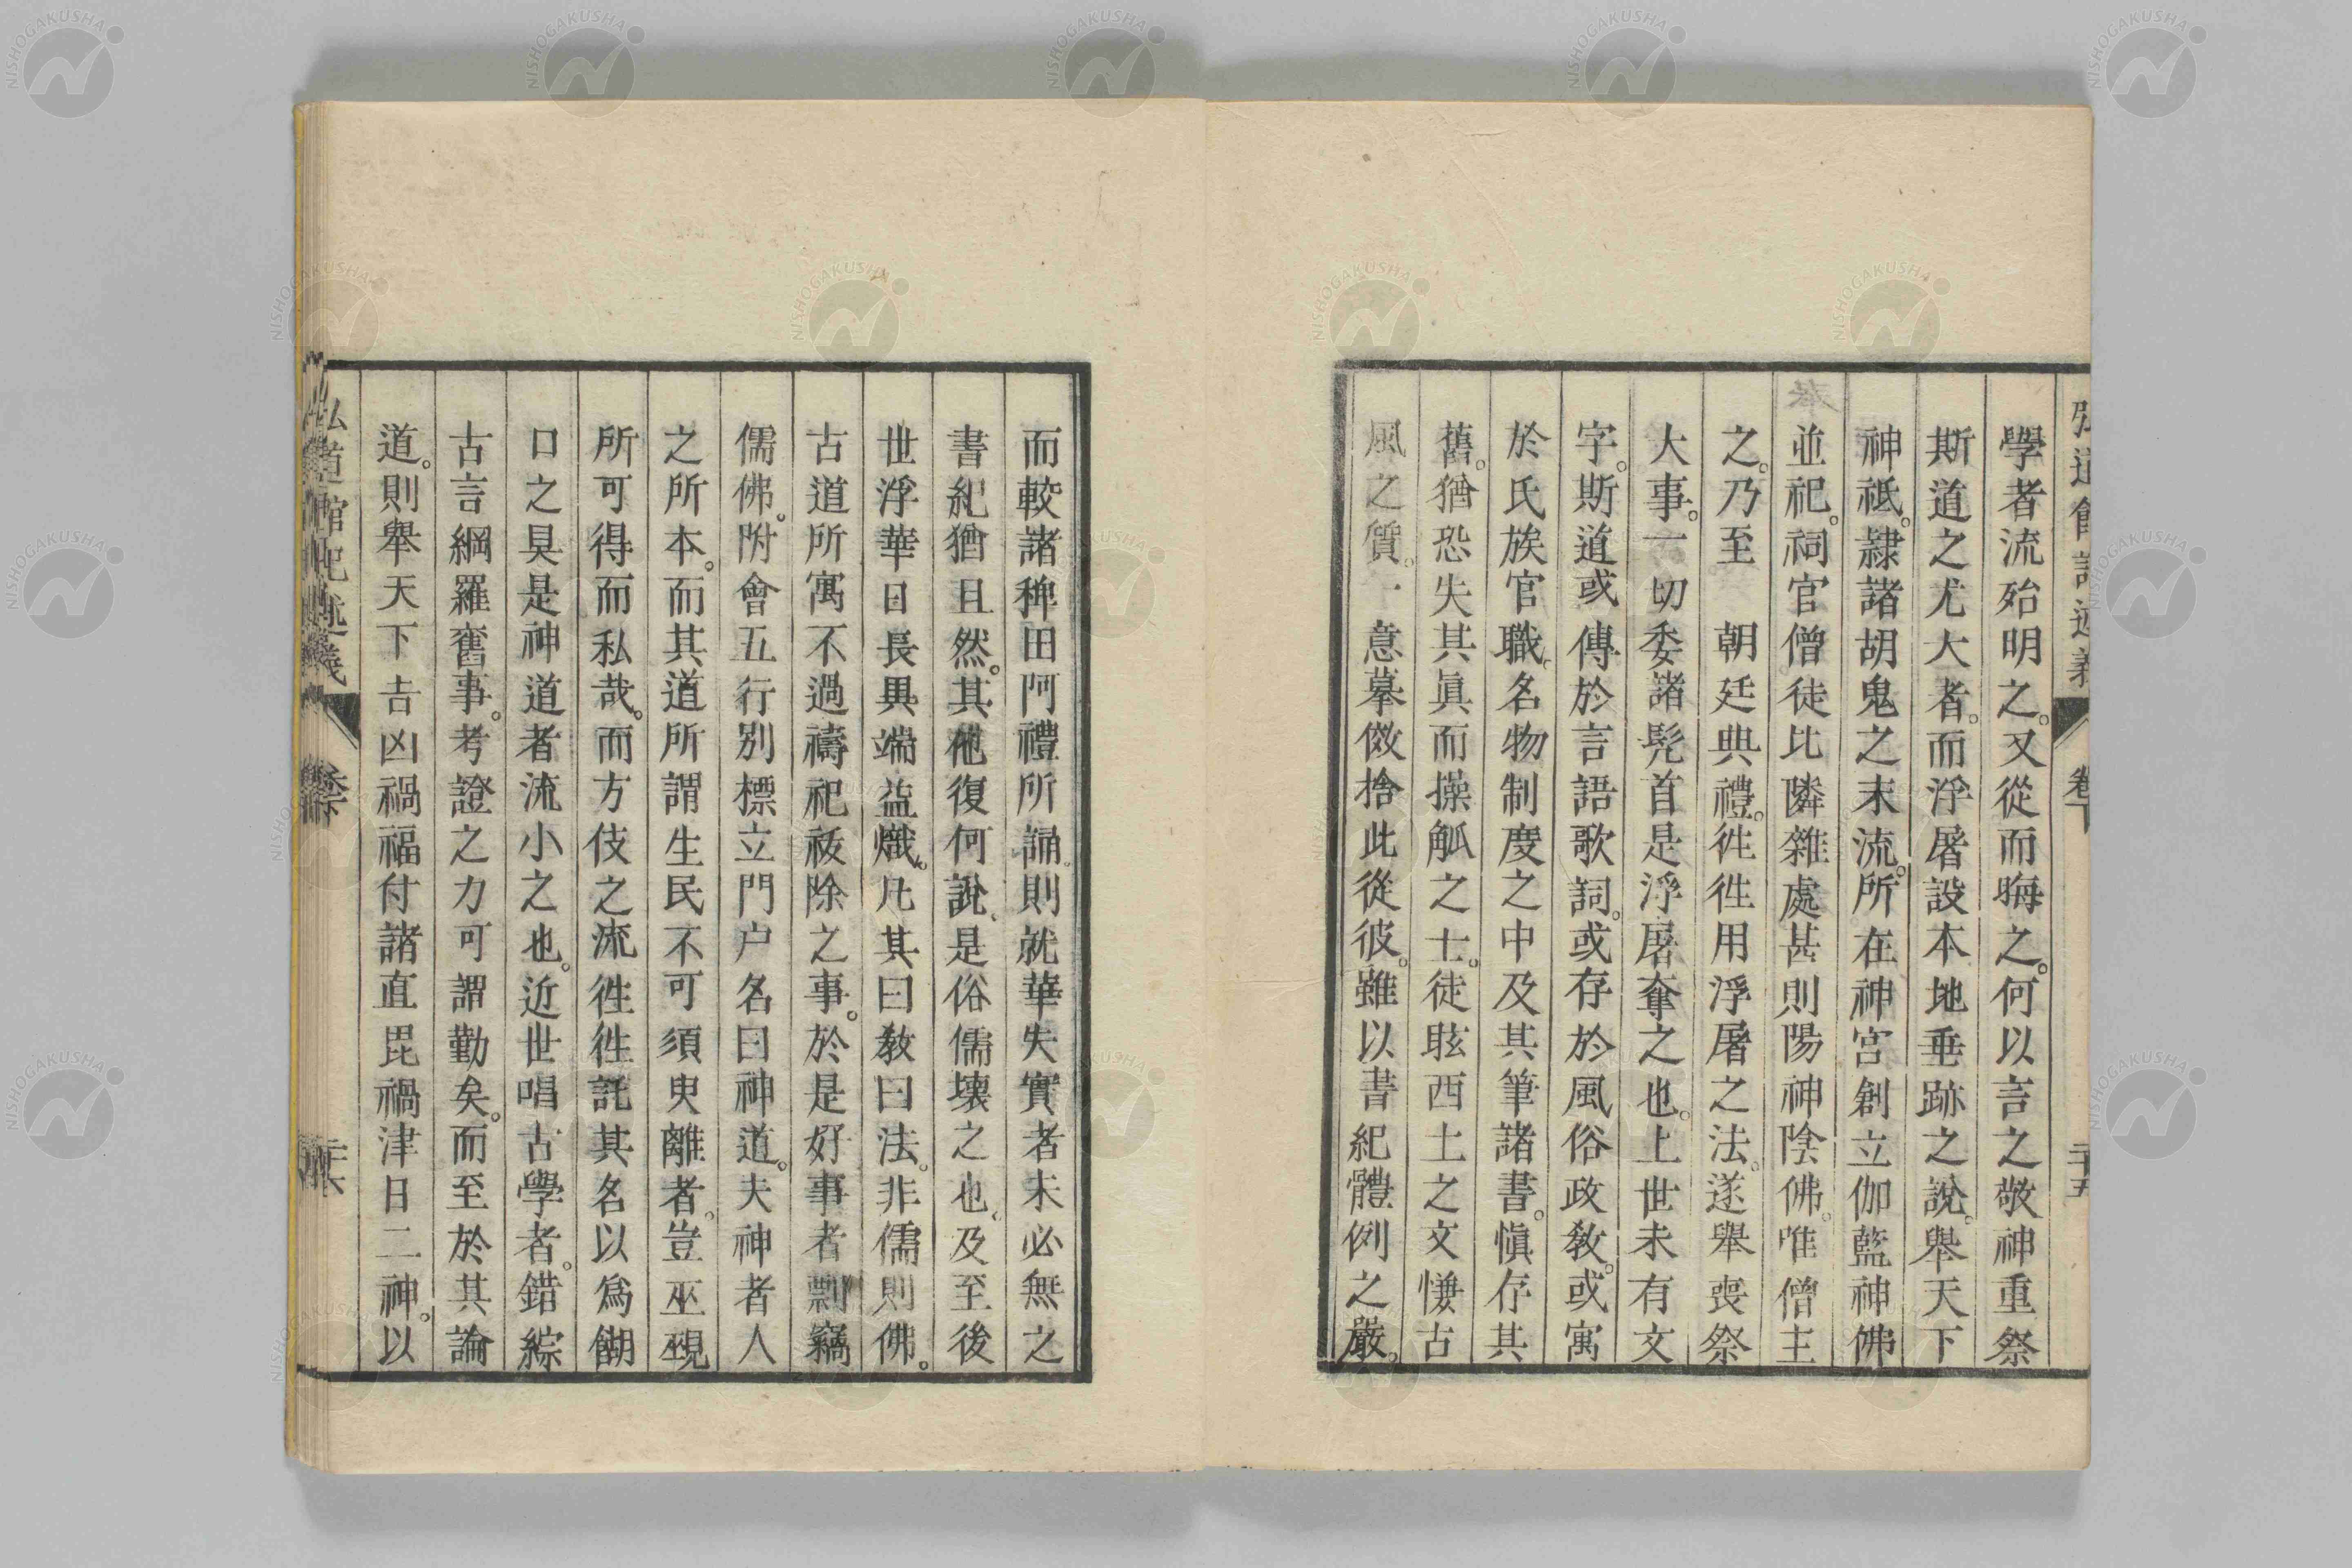 弘道館記述義 卷下 二十五
學者流殆明之。又從而晦之。何以言之敬神重祭
斯道之尤大者。而浮屠設本地垂跡之說。擧天下
神祇。隷諸胡鬼之末流。所在神宮創立伽藍神佛
並祀。祠官僧徒比隣雜處甚則陽神陰佛。唯僧主
之。乃至 朝廷典禮。徃徃用浮屠之法。遂擧喪祭
大事。一切委諸髡首是浮屠奪之也。上世未有文
字。斯道或傳於言語歌詞。或存於風俗政敎。或寓
於氏族官職。名物制度之中及其筆諸書。愼存其
舊。猶恐失其眞而操觚之士。徒眩西土之文慊古
風之質。一意摹倣捨此從彼。雖以書紀體例之嚴。
而較諸稗田阿禮所誦。則就華失實者未必無之
書紀猶且然。其他復何說。是俗儒壞之也。及至後
世浮華日長異端益熾。凡其曰敎曰法。非儒則佛。
古道所寓不過禱祀祓除之事。於是好事者剽竊
儒佛。附會五行別標立門户名曰神道。夫神者人
之所本。而其道所謂生民不可須臾離者。豈巫覡
所可得而私哉。而方伎之流徃徃託其名以爲餬
口之具是神道者流小之也。近世唱古學者。錯綜
古言綱羅舊事。考證之力可謂勤矣。而至於其論
道。則擧天下吉凶禍福付諸直毘禍津日二神。以
弘道館記述義 二十六